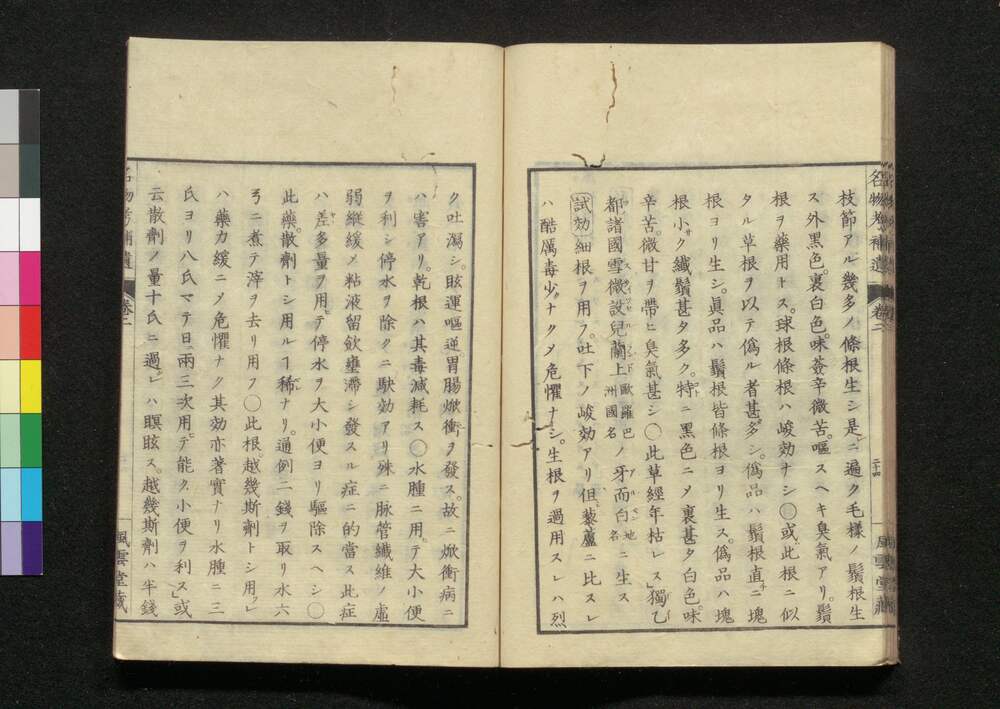 名物考補遺 卷二 二十四 風雲堂藏
枝節アル幾多ノ條根生シ是ニ遍ク毛樣ノ鬚根生
ス外黑色。裏白色。味薟辛微苦。嘔スヘキ臭氣アリ。鬚
根ヲ藥用トス。球根條根ハ峻効ナシ○或此根ニ似
タル草根ヲ以テ僞ル者甚多シ。僞品ハ鬚根直ニ塊
根ヨリ生シ。眞品ハ鬚根皆條根ヨリ生ス。僞品ハ塊
根小ク纎鬚甚タ多ク。特ニ黑色ニメ裏甚タ白色。味
辛苦。微甘ヲ帶ヒ臭氣甚シ○此草經年枯レス」獨乙
都諸國雪微設兒蘭土歐羅巴洲國名ノ牙而白地名ニ生ス
試効 細根ヲ用フ。吐下ノ峻効アリ但藜蘆ニ比スレ
ハ酷厲毒少ナクメ危懼ナシ。生根ヲ過用スレハ烈
ク吐瀉シ。眩運嘔逆。胃腸焮衝ヲ發ス。故ニ焮衝病ニ
ハ害アリ。乾根ハ其毒減耗ス○水腫ニ用テ大小便
ヲ利シ停水ヲ除クニ駃効アリ殊ニ脉管纎維ノ虛
弱縱緩メ粘液留飮壅滯シ發スル症ニ的當ス此症
ハ差多量ヲ用テ停水ヲ大小便ヨリ驅除スヘシ○
此藥。散劑トシ用ルヿ稀ナリ。通例二錢ヲ取リ水六
弓ニ煮テ滓ヲ去リ用フ○此根。越幾斯劑トシ用レ
ハ藥力緩ニメ危懼ナク其効亦著實ナリ水腫ニ三
氏ヨリ八氏マテ日ニ兩三次用テ能ク小便ヲ利ス」或
云散劑ノ量十氏ニ過レハ瞑眩ス。越幾斯劑ハ半錢
名物考補遺 卷二 風雲堂藏